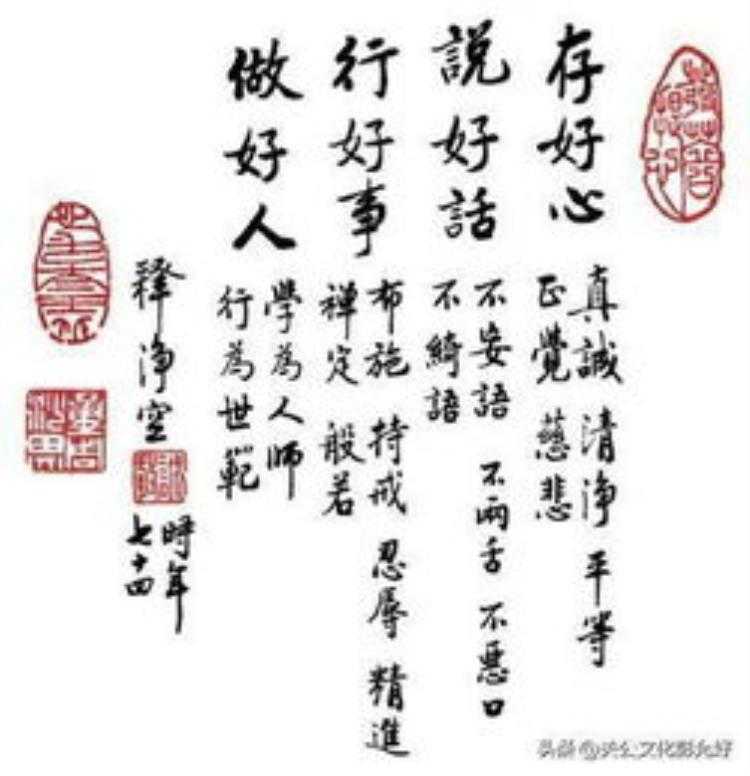 存好心
真誠 清淨 平等
正覺 慈悲
説好話
不妄語 不兩舌 不惡口
不綺語
行好事
布施 持戒 忍辱 精進
禪定 般若
做好人
學為人師
行為世範
釋淨空
時年
七十四